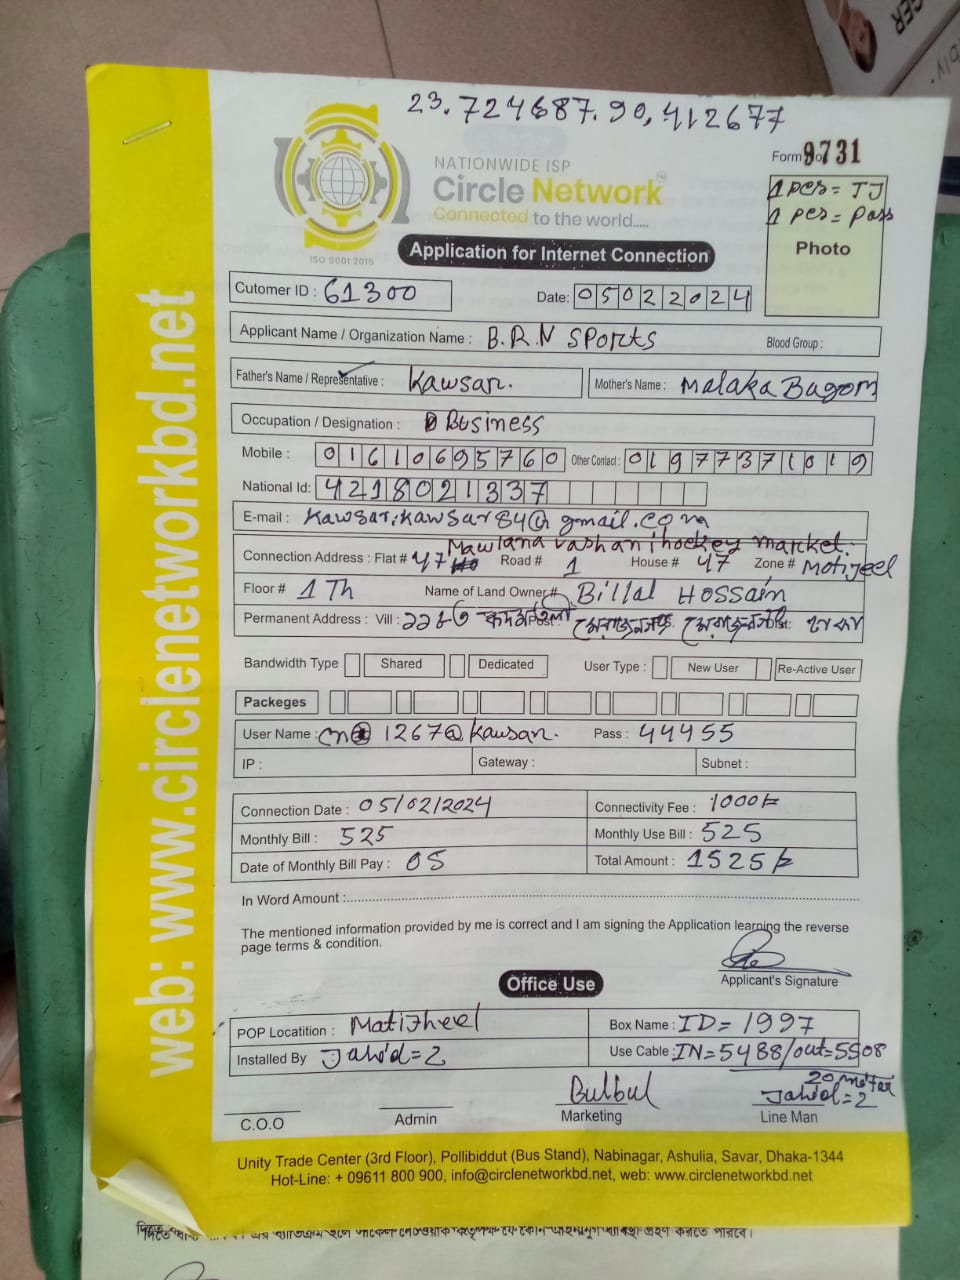 23.724687.90,412677
NATIONWIDE ISP
Circle Network
Connected to the world.....
ISO 9001:2015
Form No 9731
1 pes = TJ
1 pes = Pass
Photo
Application for Internet Connection
Cutomer ID : 61300
Date: 05022024
Applicant Name / Organization Name : B.R.N SPorts
Blood Group :
Father's Name / Representative : Kawsar.
Mother's Name : Malaka Bagom
Occupation / Designation : Business
Mobile : 01610695760 Other Contact : 01977371019
National Id: 4218021337
E-mail : Kawsar.kawsar84@gmail.com
Mawlana vashani hockey market.
Connection Address : Flat # 47 Road # 1 House # 47 Zone # Motijeel
Floor # 1 Th Name of Land Owner # Billal HOSSain
Permanent Address : Vill : Post : Dist: ঢাকা
Bandwidth Type Shared Dedicated User Type : New User Re-Active User
Packeges
User Name : cn 1267@kawsar. Pass : 44455
IP : Gateway : Subnet :
Connection Date : 05/02/2024 Connectivity Fee : 1000/=
Monthly Bill : 525 Monthly Use Bill : 525
Date of Monthly Bill Pay : 05 Total Amount : 1525/=
In Word Amount :
The mentioned information provided by me is correct and I am signing the Application learning the reverse
page terms & condition.
Applicant's Signature
Office Use
POP Locatition : Matijheel Box Name : ID = 1997
Installed By Jahid=2 Use Cable : IN=5488/out=5508
20 metar
Bulbul Jahid=2
C.O.O Admin Marketing Line Man
Unity Trade Center (3rd Floor), Pollibiddut (Bus Stand), Nabinagar, Ashulia, Savar, Dhaka-1344
Hot-Line: + 09611 800 900, info@circlenetworkbd.net, web: www.circlenetworkbd.net
web: www.circlenetworkbd.net